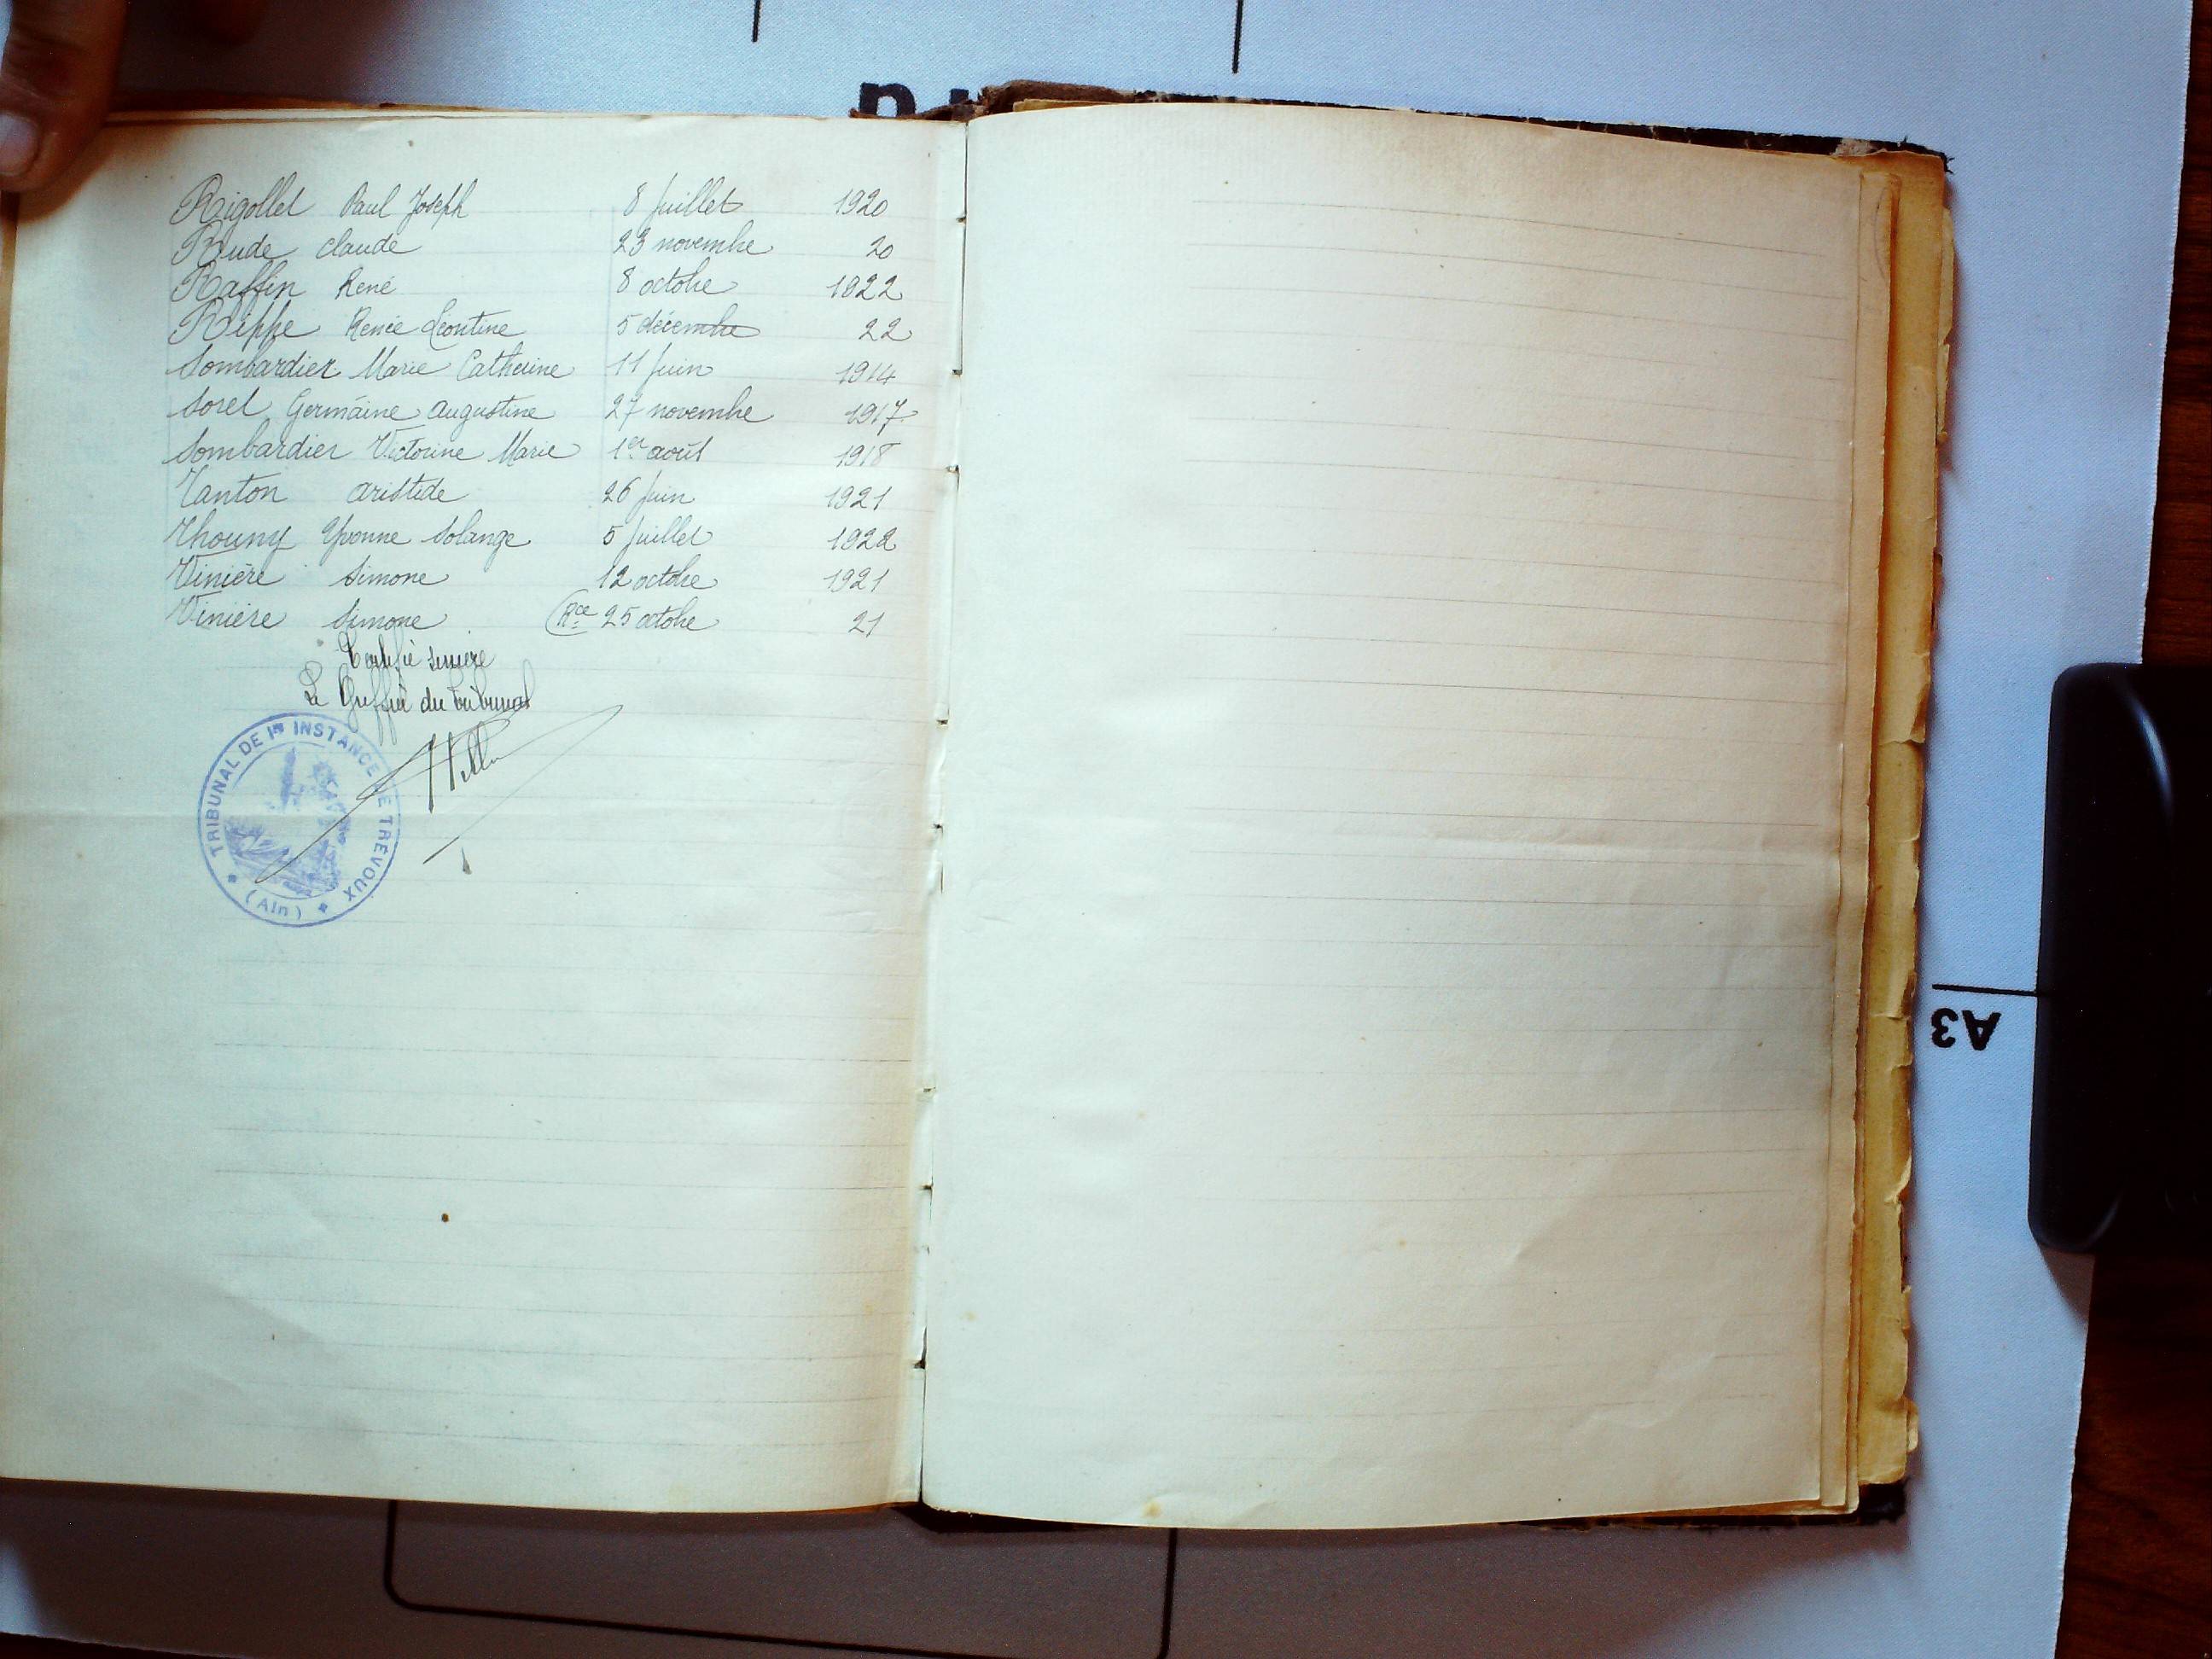 Rigollet Paul Joseph 8 juillet 1920
Rude Claude 23 novembre 20
Raffin René 8 octobre 1922
Rippe Renée Léontine 5 décembre 22
Sombardier Marie Catherine 11 juin 1914
Sorel Germaine Augustine 27 novembre 1917
Sombardier Victorine Marie 1er août 1918
Tanton Aristide 26 juin 1921
Thouny Yvonne Solange 5 juillet 1922
Vinière Simone 12 octobre 1921
Vinière Simone (Rce 25 octobre 21
Certifié sincère
Le Greffier du tribunal
TRIBUNAL DE 1re INSTANCE DE TRÉVOUX
(Ain)
A3